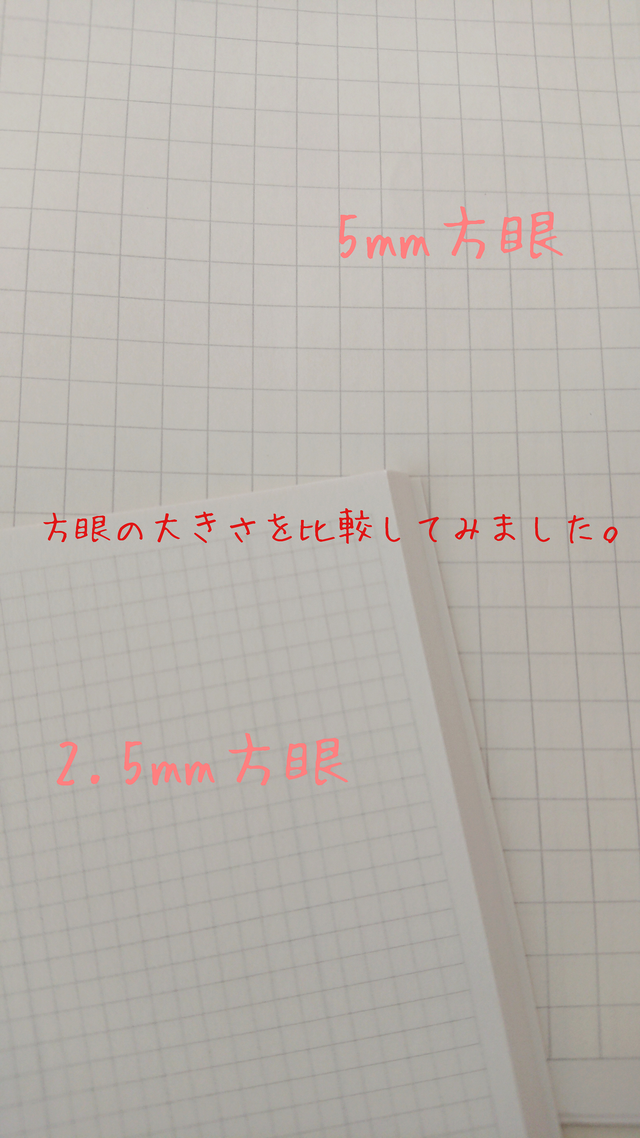 5mm方眼
方眼の大きさを比較してみました。
2.5mm方眼